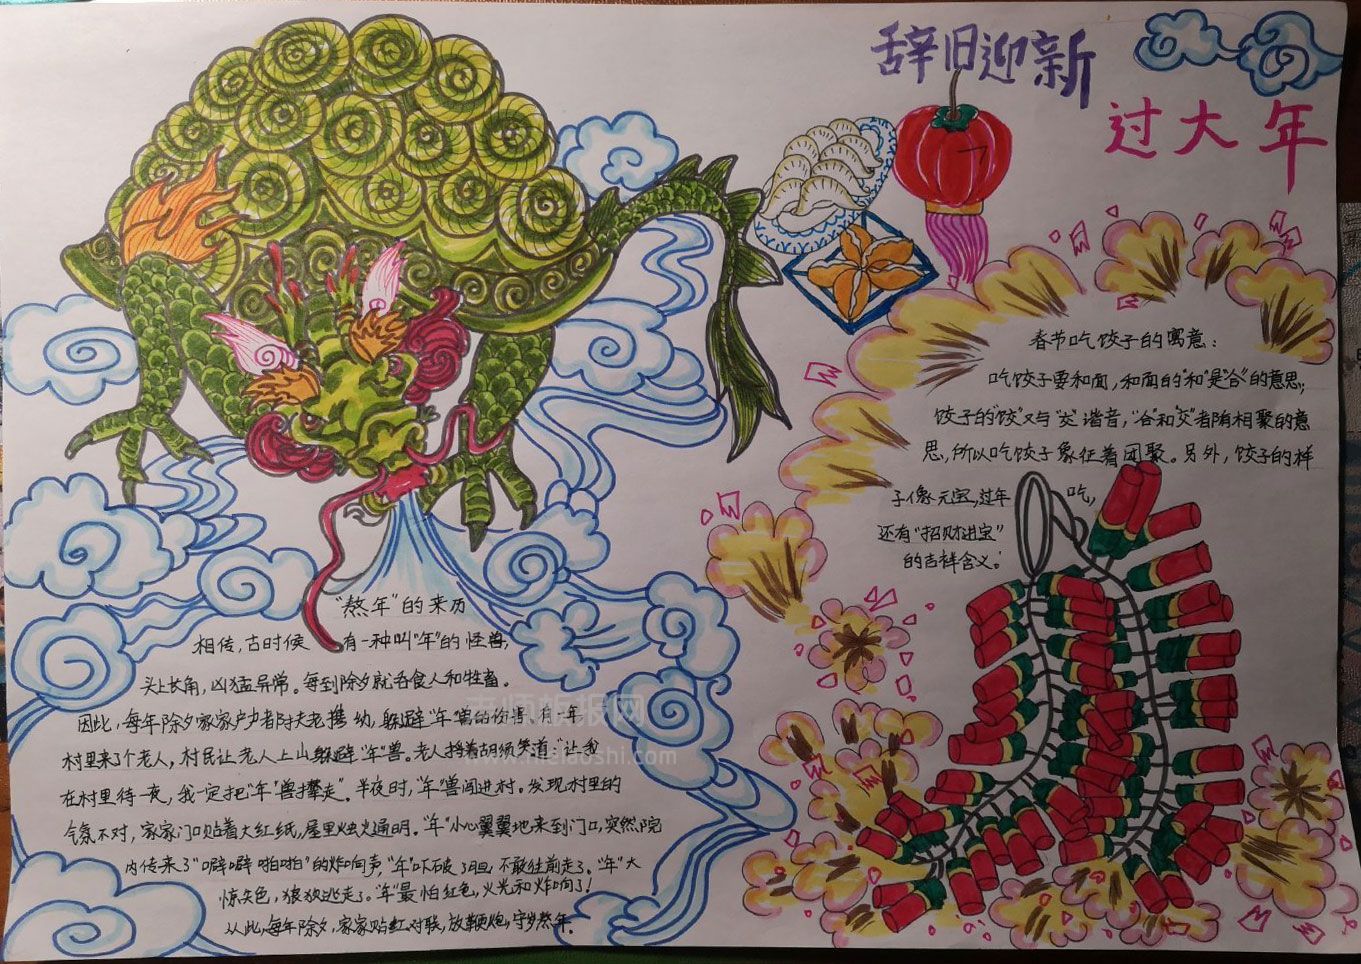 辞旧迎新
过大年
春节吃饺子的寓意:
吃饺子要和面,和面的"和"是"合"的意思;
饺子的"饺"又与"交"谐音,"合"和"交"者陏相聚的意
思,所以吃饺子象征着团聚。另外,饺子的样
子像元宝,过年吃,
还有"招财进宝"
的吉祥含义!
"熬年"的来历
相传,古时候有一种叫"年"的怪兽,
头上长角,凶猛异常。每到除夕就吞食人和牲畜。
因此,每年除夕家家户户都扶老携幼,躲避"年"兽的伤害,有一年
村里来了个老人,村民让老人上山躲避"年"兽。老人捋着胡须笑道:"让我
在村里待一夜,我一定把"年"兽撵走"。半夜时,"年"兽闯进村。发现村里的
气氛不对,家家门口贴着大红纸,屋里烛火通明。"年"小心翼翼地来到门口,突然,院
内传来了"噼噼啪啪"的炸响声,"年"吓破了胆,不敢往前走了。"年"大
惊失色,狼狈逃走了。"年"最怕红色,火光和炸响了!
从此,每年除夕,家家贴红对联,放鞭炮,守岁熬年。
老师板报网